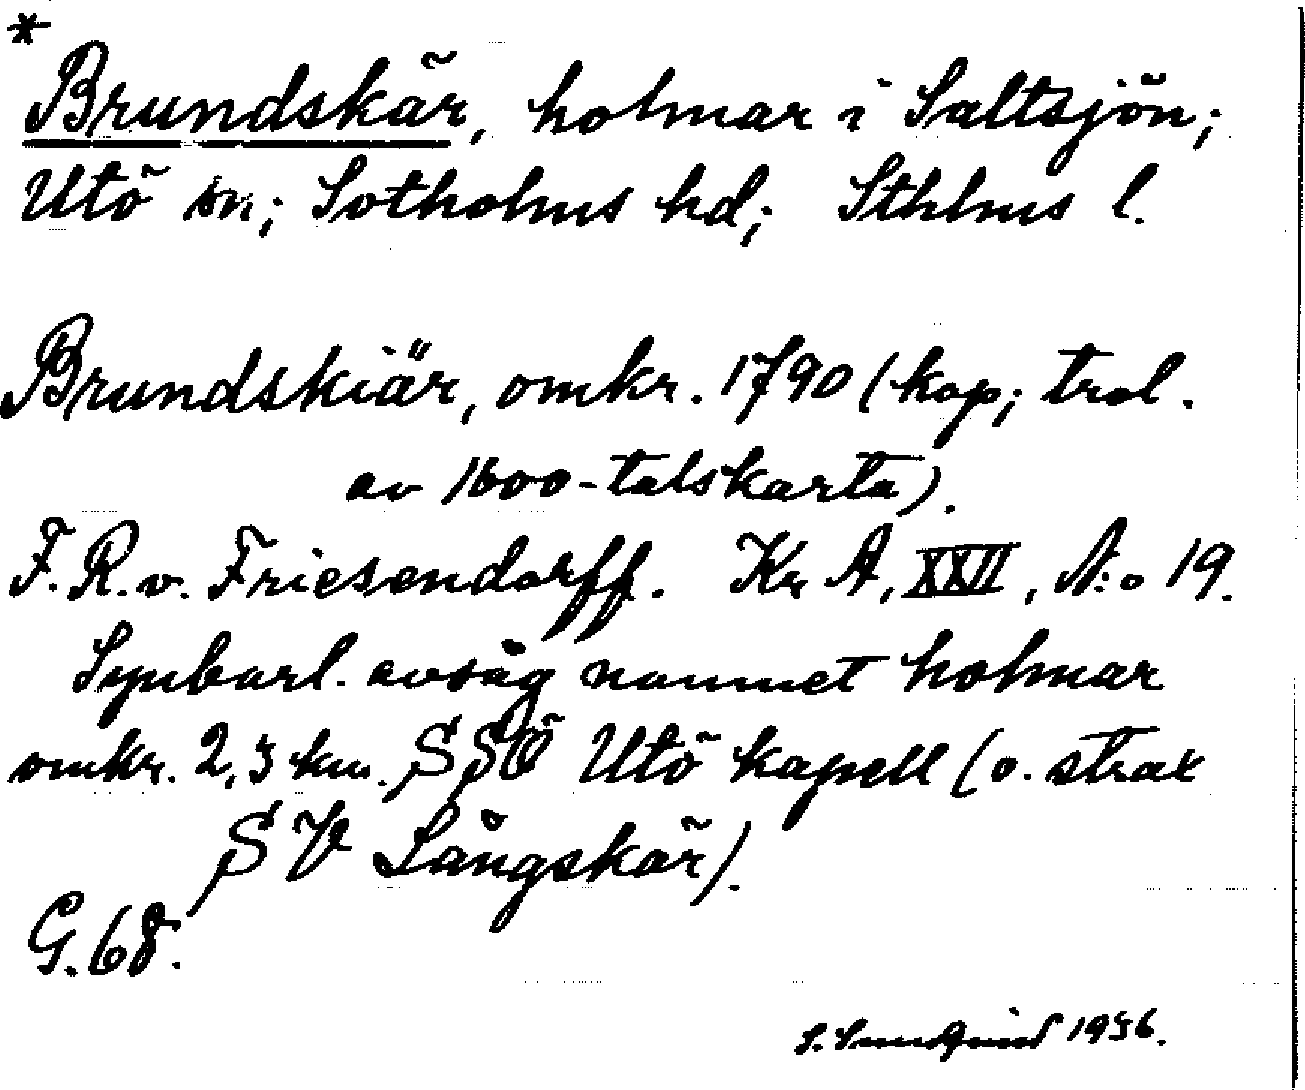 *
Brundskär, holmar i Saltsjön;
Utö sn; Sotholms hd; Sthlms l.
Brundskiär, omkr. 1790 (kop; trol.
av 1600-talskarta).
F. R. v. Friesendorff. Kr A, XXII, N:o 19.
Synbarl. avsåg namnet holmar
omkr. 2,5 km. SSÖ Utö kapell (o. strax
SV Långskär).
G. 68.
S. 1956.